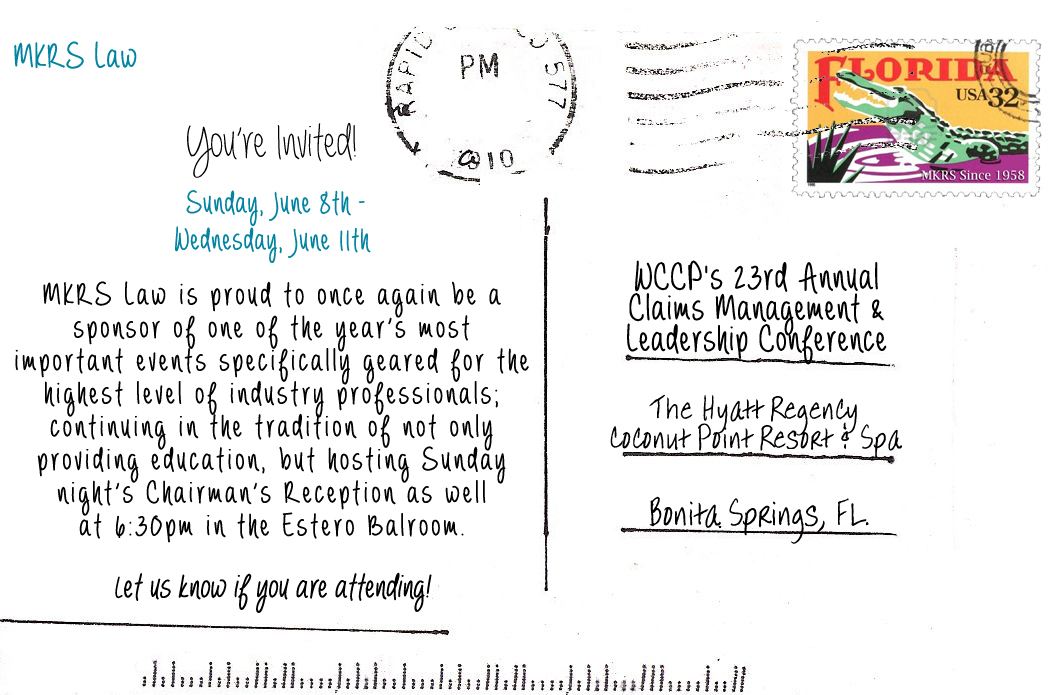 MKRS Law
You're Invited!
Sunday, June 8th -
Wednesday, June 11th
MKRS Law is proud to once again be a
sponsor of one of the year's most
important events specifically geared for the
highest level of industry professionals;
continuing in the tradition of not only
providing education, but hosting Sunday
night's Chairman's Reception as well
at 6:30pm in the Estero Balroom.
Let us know if you are attending!
RAPID
577
PM
FLORIDA
USA 32
MKRS Since 1958
WCCP's 23rd Annual
Claims Management &
Leadership Conference
The Hyatt Regency
Coconut Point Resort & Spa
Bonita Springs, FL.